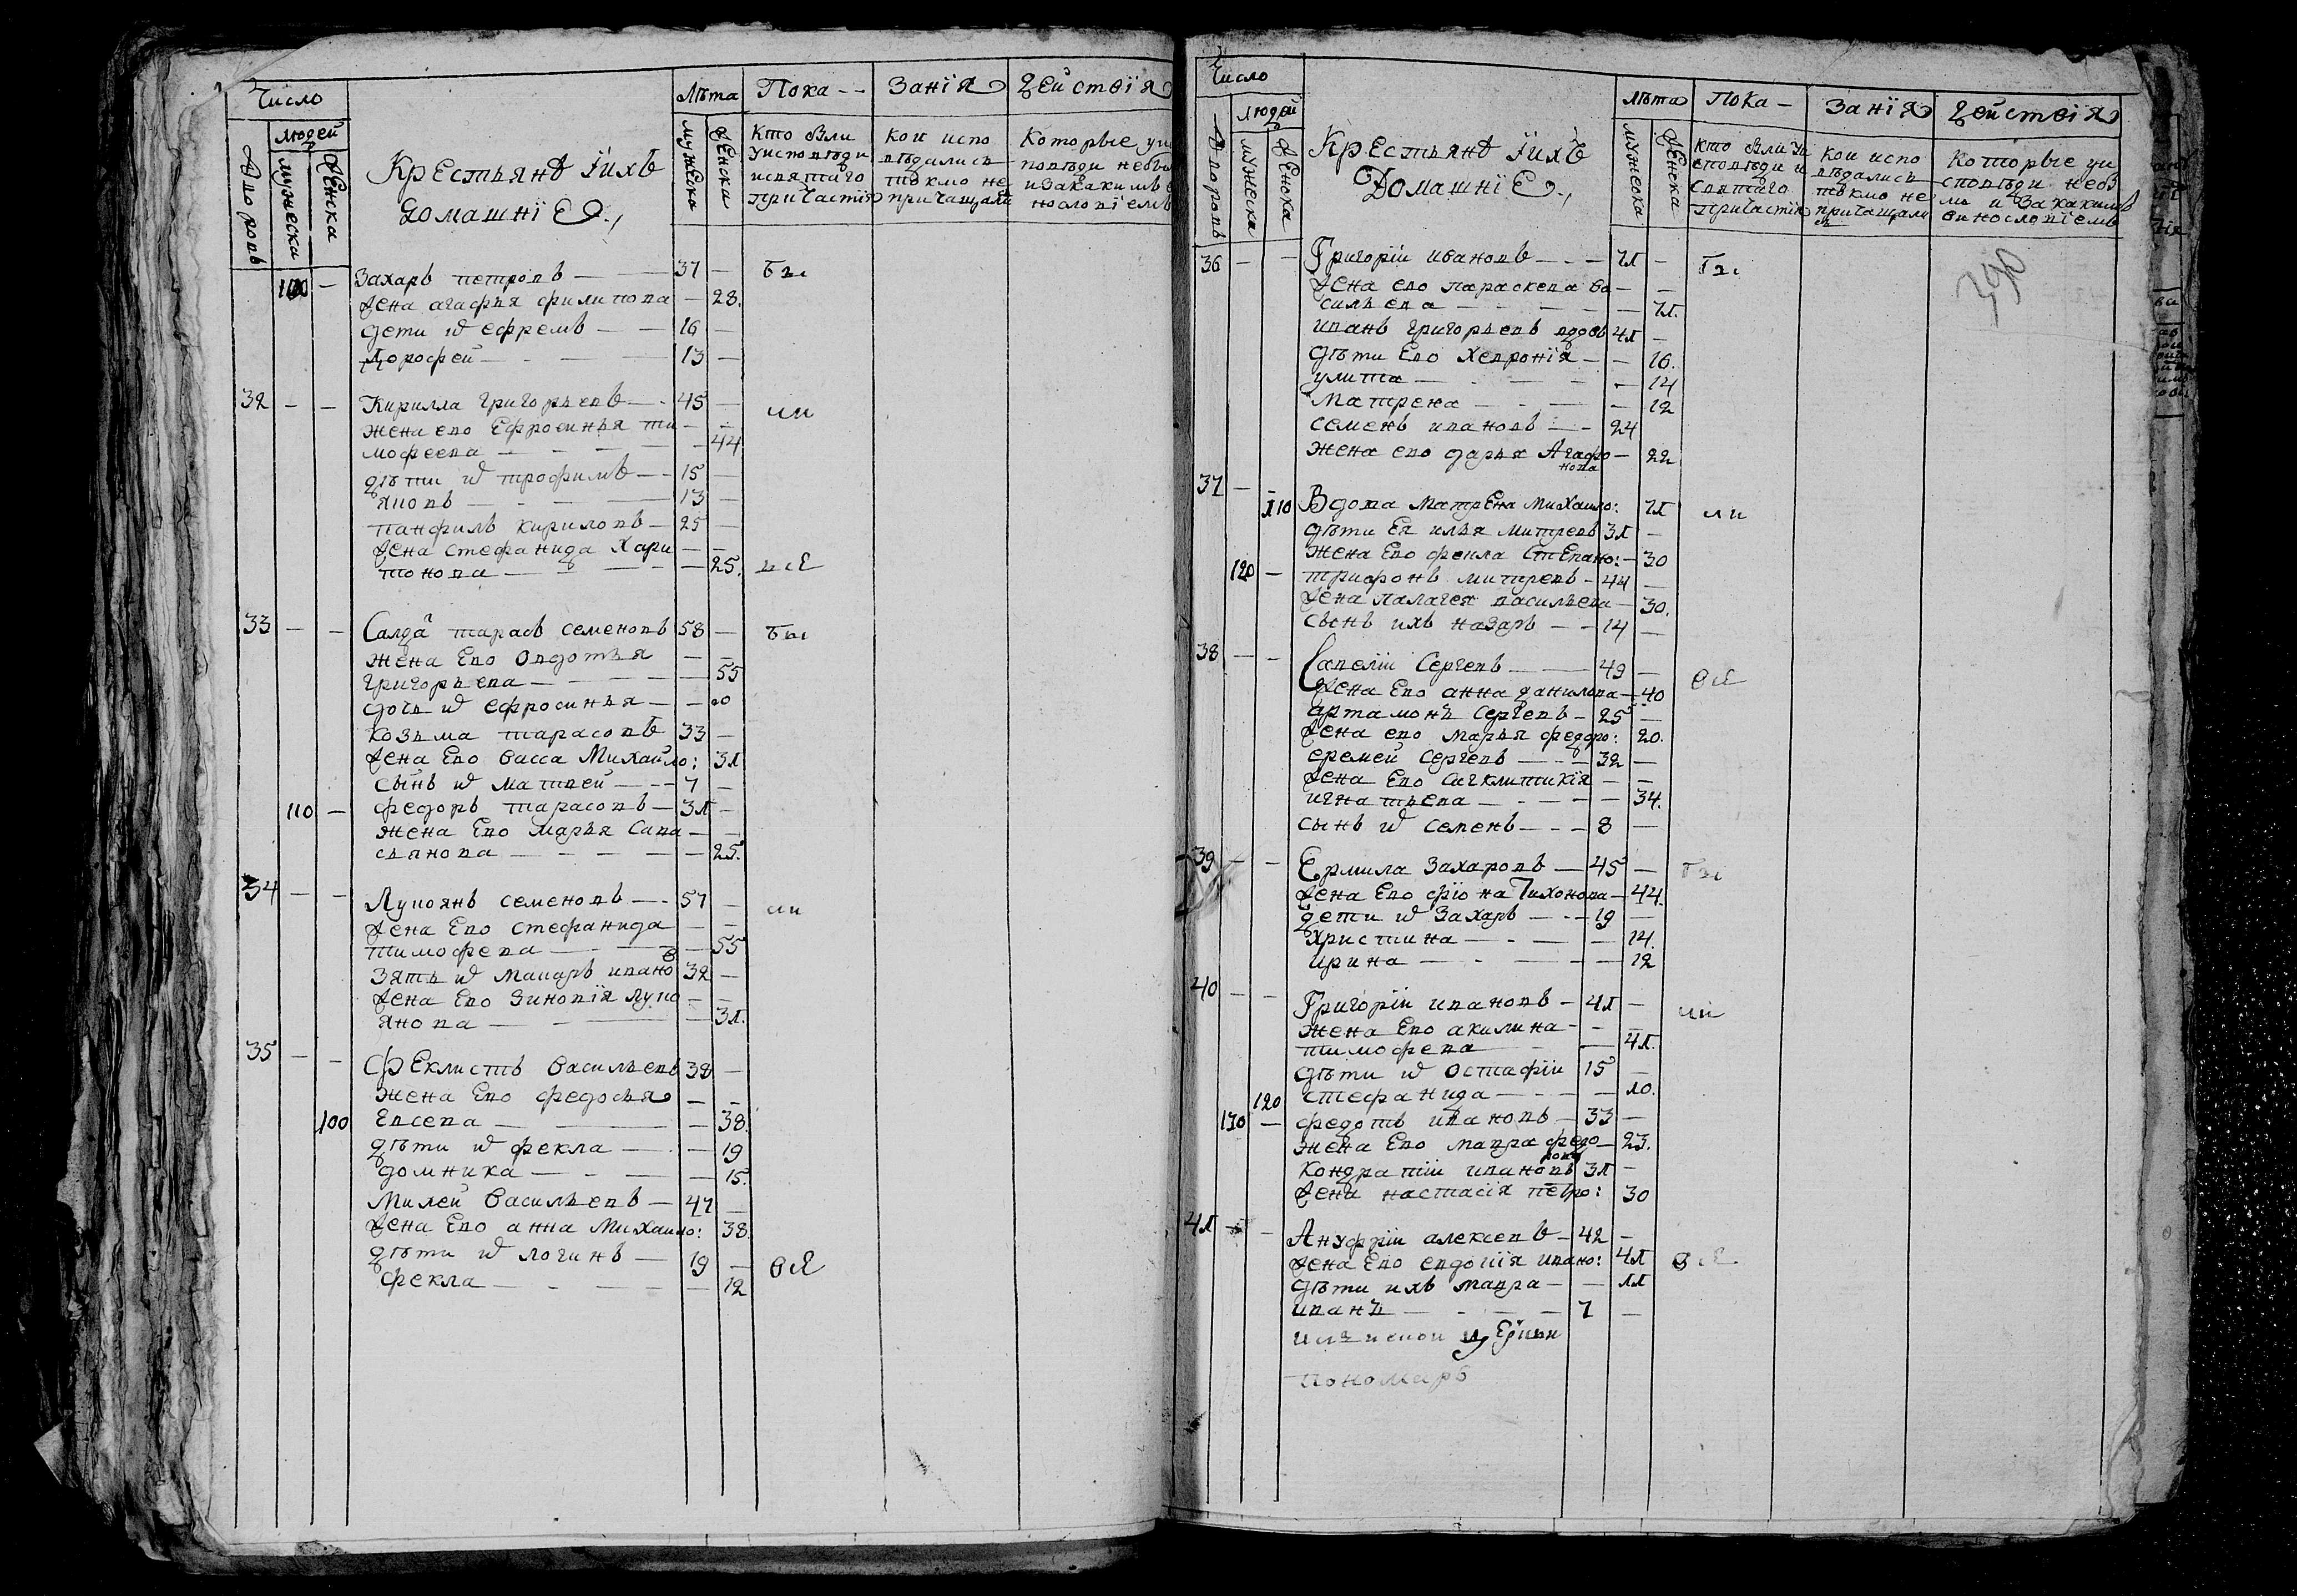 Число
Людей
Дворовъ
мужеска
женска
Крестьянѣ іихъ
домашніе
Лѣта
мужеска
женска
Пока -- занія действія
кто были
уисповѣди
исвятаго
причастія
кои испо
вѣдались
токмо не
причащали
Которые уис
повѣди небы
изакакимъ
нословіемъ
100 — Захаръ петровъ — 37 — Бы
жена агафья филипова — 28.
дети ѿ ефремъ — 16 —
дорофей — 13 —
32 — — Кирилла григорьевъ — 45 — ли
жена ево Ефросинья ти — —
мофеева — 44
дѣти ѿ трофимъ — 15 —
яковъ — 13 —
панфилъ кириловъ — 25 —
жена стефанида хари — —
тонова — 25. всѣ
33 — — Салда тарасъ семеновъ 58 — Бы
жена Ево овдотья — —
григорьева — 55
дочь ѿ ефросинья — 20
козьма тарасовъ 33 —
жена Ево васса Михайло: 31
сынъ ѿ матвей — 7 —
110 — федоръ тарасовъ — 31 —
жена Ево марья сава — —
сьянова — 25.
34 — — Лукоянъ семеновъ — 57 — ли
жена Ево стефанида — —
тимофева — 55
зять ѿ макаръ иванов 32 —
жена Ево зиновія луко — —
янова — 31.
35 — — Феклистъ васильевъ 38 —
жена Ево федосья — —
100 Евсева — 38.
дѣти ѿ фекла — 19
домника — 15.
Милей васильевъ — 47 —
жена Ево анна Михаило: 38.
дѣти ѿ логинъ — 19 — всѣ
фекла — 12
Число
Людей
Дворовъ
мужеска
женска
Крестьянѣ іихъ
Домашніе
Лѣта
мужеска
женска
Пока — занія действія
кто были уи
споведи и
святаго
причастія
кои испо
вѣдались
токмо не
причащали
сь
Которые уи
споведи небы
ли и за какимъ
винословіемъ
390
36 — — Григоріи ивановъ — 71 — Бы
жена ево параскева ва — —
сильева — 71.
иванъ григорьевъ вдовъ 41 —
дѣти Ево хевронія — 16.
улита — 14
матрена — 12
семенъ ивановъ — 24
жена ево дарья Агафо — 22
нова
37 — 110 Вдова матрена михаило: 71 ли
дѣти Ея илья митревъ 31 —
жена Ево фекла стЕпано: — 30
120 — трифонъ митревъ — 44 —
жена палагея васильева — 30.
сынъ ихъ назаръ — 14 —
38 — — Савеліи Сергевъ — 49 —
жена Ево анна данилова — 40 всѣ
артамонъ сергевъ — 25 —
жена ево марья федоро: 20.
еремей сергевъ — 32 —
жена Ево сигклитикія — —
игнатьева — 34.
сынъ ѿ семенъ — 8 —
39 — — Ермила захаровъ — 45 — Бы
жена Ево фіона Тихонова — 44.
дети ѿ захаръ — 19 —
христина — 14.
ирина — 12
40 — — Григоріи ивановъ — 41 — ли
жена Ево акилина — —
тимофева — 41.
дѣти ѿ остафіи 15 —
120 стефанида — 10.
130 — федотъ ивановъ — 33 —
жена Ево мавра федо — 23.
това
кондратіи ивановъ 31 —
жена настасія петро: 30
41 — — Ануфріи алексевъ — 42 —
жена Ево евдокія ивано: 41 всѣ
дѣти ихъ мавра — 11
иванъ — 7 —
пономаръ